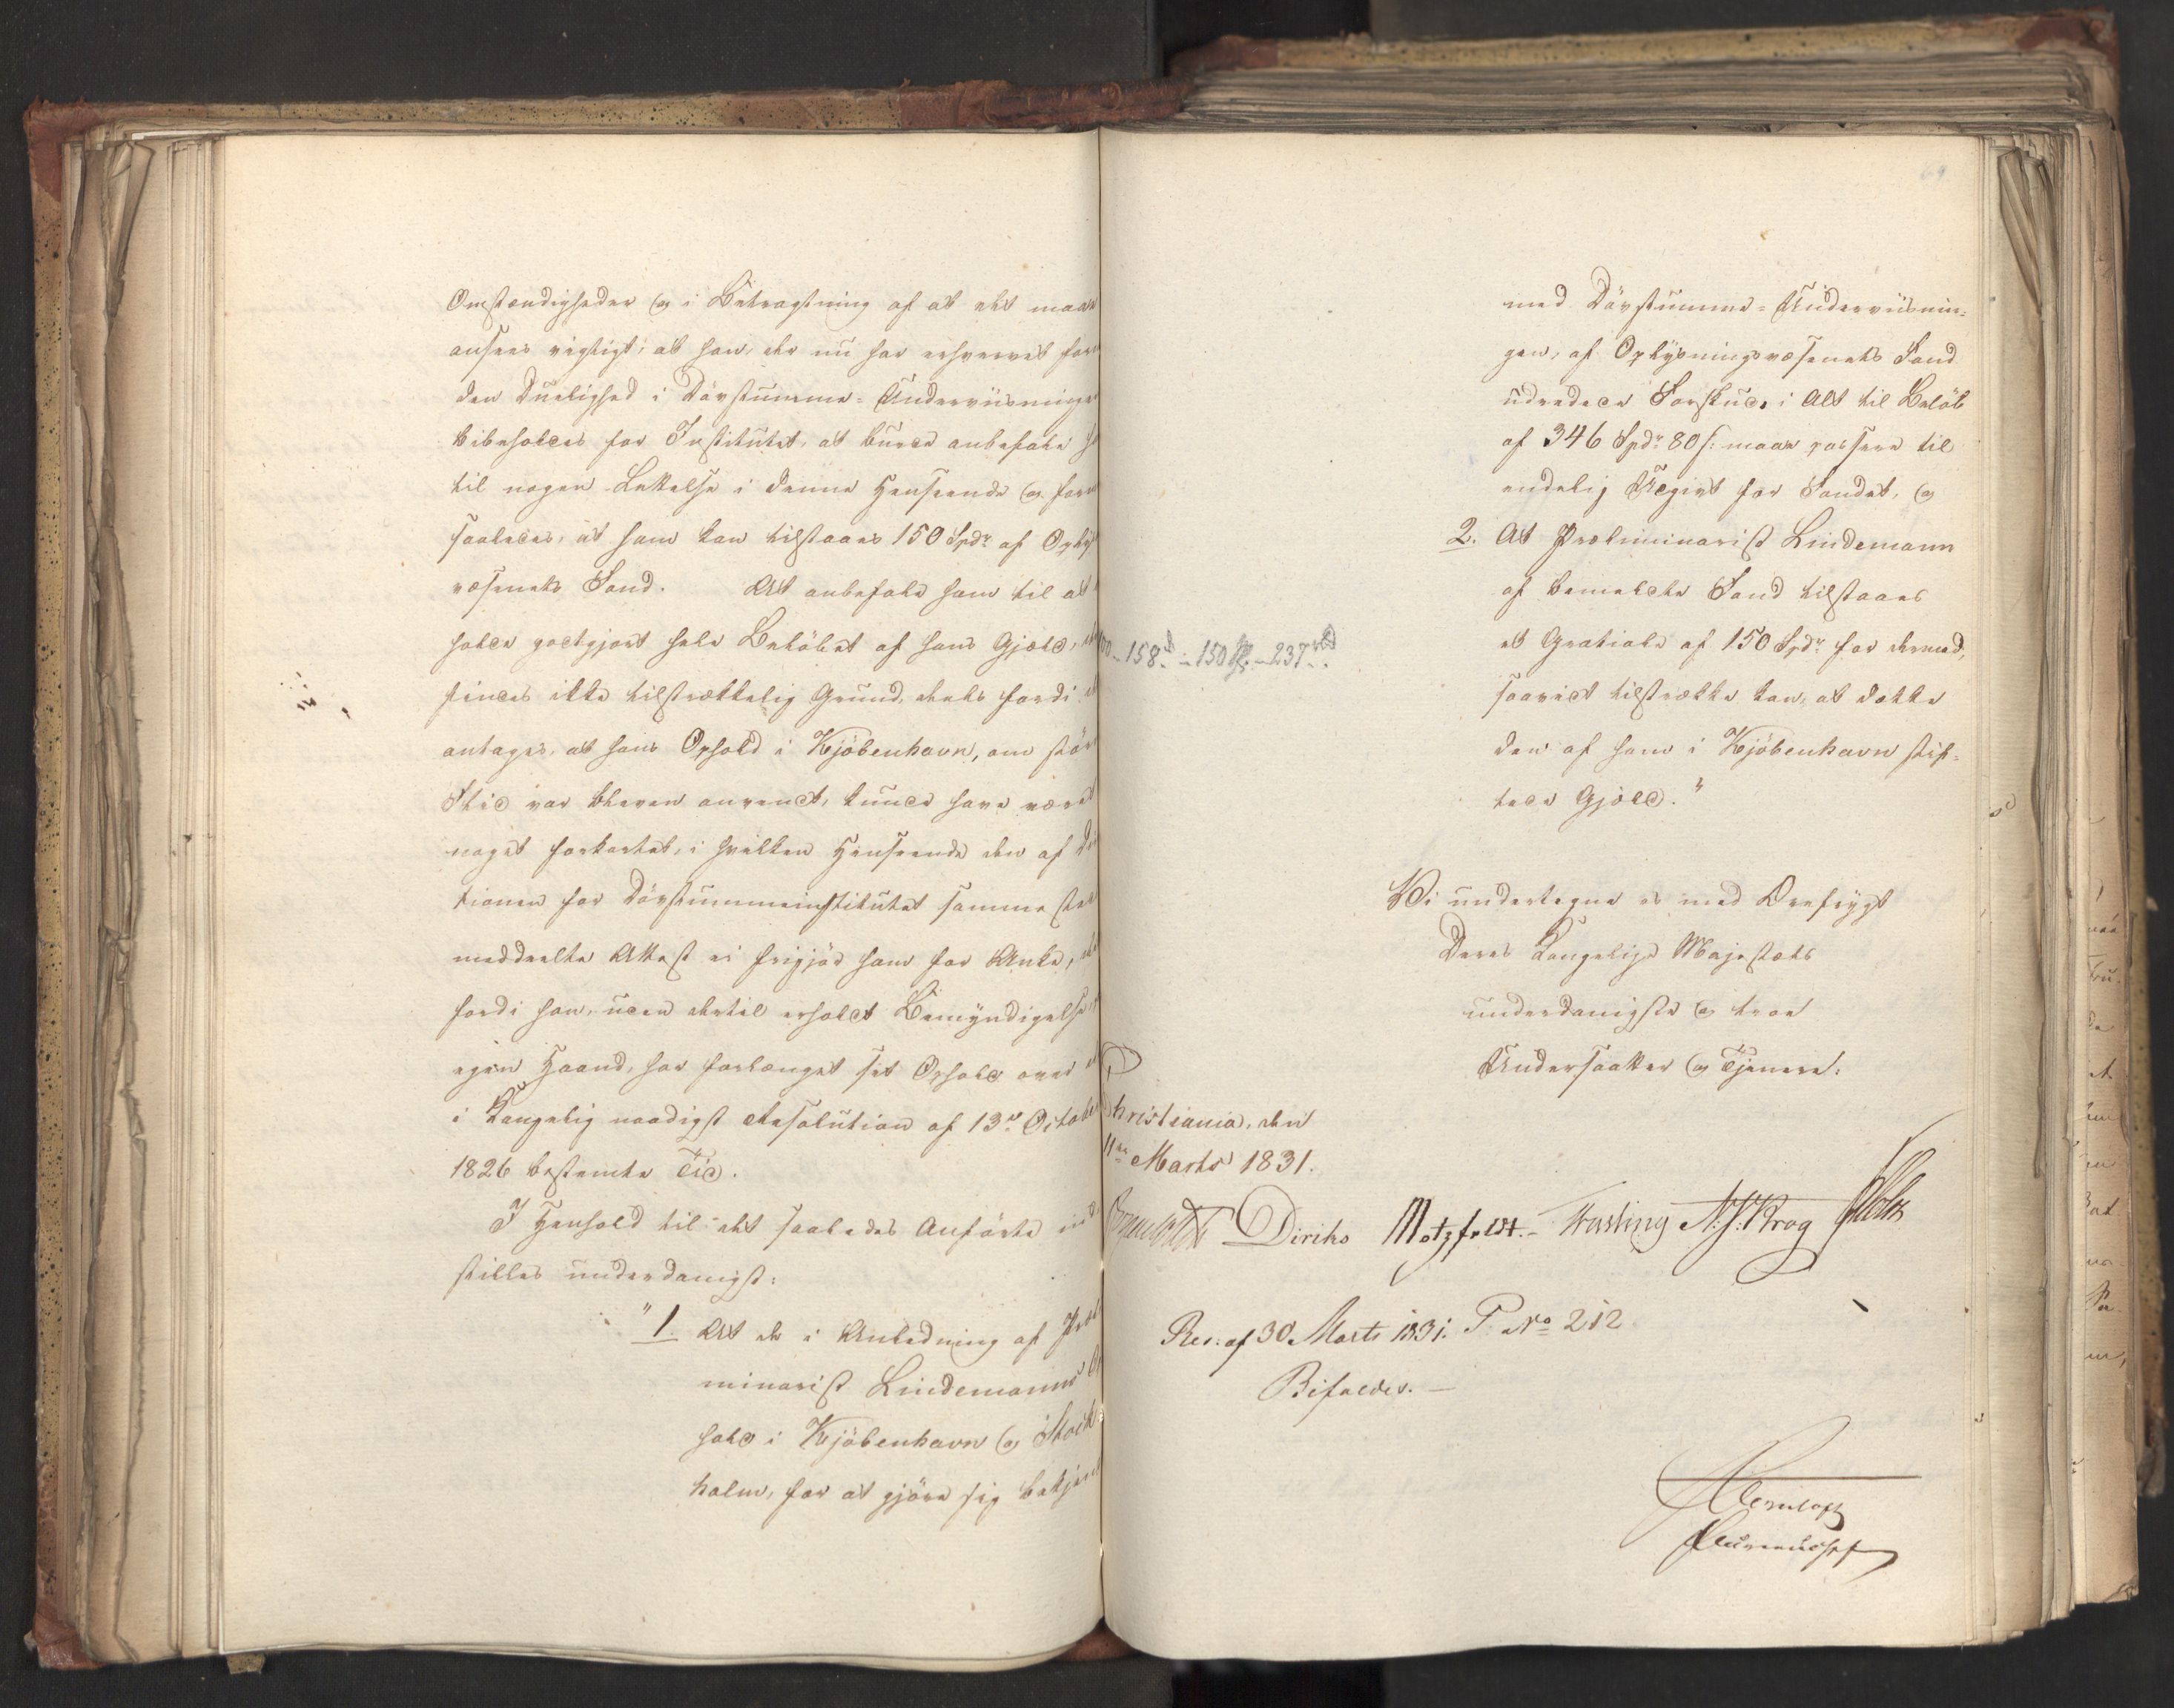 Omstændigheder og i Betragtning af at det maae
ansees vigtigt, at han, der nu har erhvervet for
den Duelighed i Døvstumme-Underviisningen
bibeholdes for Institutet, at burde anbefale
til nogen Lettelse i denne Henseende og
saaledes, at ham kan tilstaaes 150 Spdr af Oplys
væsenets Fond. At anbefale ham til at
holde godtgjort hele Beløbet af hans Gjæld,
findes ikke tilstrækkelig Grund, deels fordi
antages, at hans Ophold i Kjöbenhavn, om större
Flid var bleven anvendt, kunde have været
noget forkortet, i hvilken Henseende den af Di
tionen for Døvstummeinstitutet samme sted
meddeelte Attest ei frigjör ham for Anke,
fordi han, uden dertil erholdt Bemyndigelse
egen Haand, har forlænget sit Ophold over
i Kongelig naadigst Resolution af 13de October
1826 bestemte Tid.
I Henhold til det saaledes Anførte ind
stilles underdanigst:
"1. At de i Anledning af Præli
minarist Lindemanns Op
hold i Kjöbenhavn og Stock
holm, for at gjöre sig bekjendt
69
med Døvstumme-Underviisnin-
gen, af Oplysningsvæsenets Fond
udredede Forskud, i Alt til Beløb
af 346 Spdr 80 s: maae passere til
endelig Udgivt for Fondet, og
2. At Præliminarist Lindemann
af bemeldte Fond tilstaaes
et Gratiale af 150 Spdr for dermed,
saavidt tilstrække kan, at dække
den af ham i Kjöbenhavn stif-
tede Gjæld."
158 - 150 - 237
Vi undertegne os med Ærefrygt
Deres Kongelige Majestæts
underdanigste og troe
Undersaatter og Tjenere.
Christiania, den
11te Marts 1831.
Diriks Motzfeldt. Fasting N. J. Krog Holst
Res: af 30 Marts 1831. P. No 212
Bifaldes. —